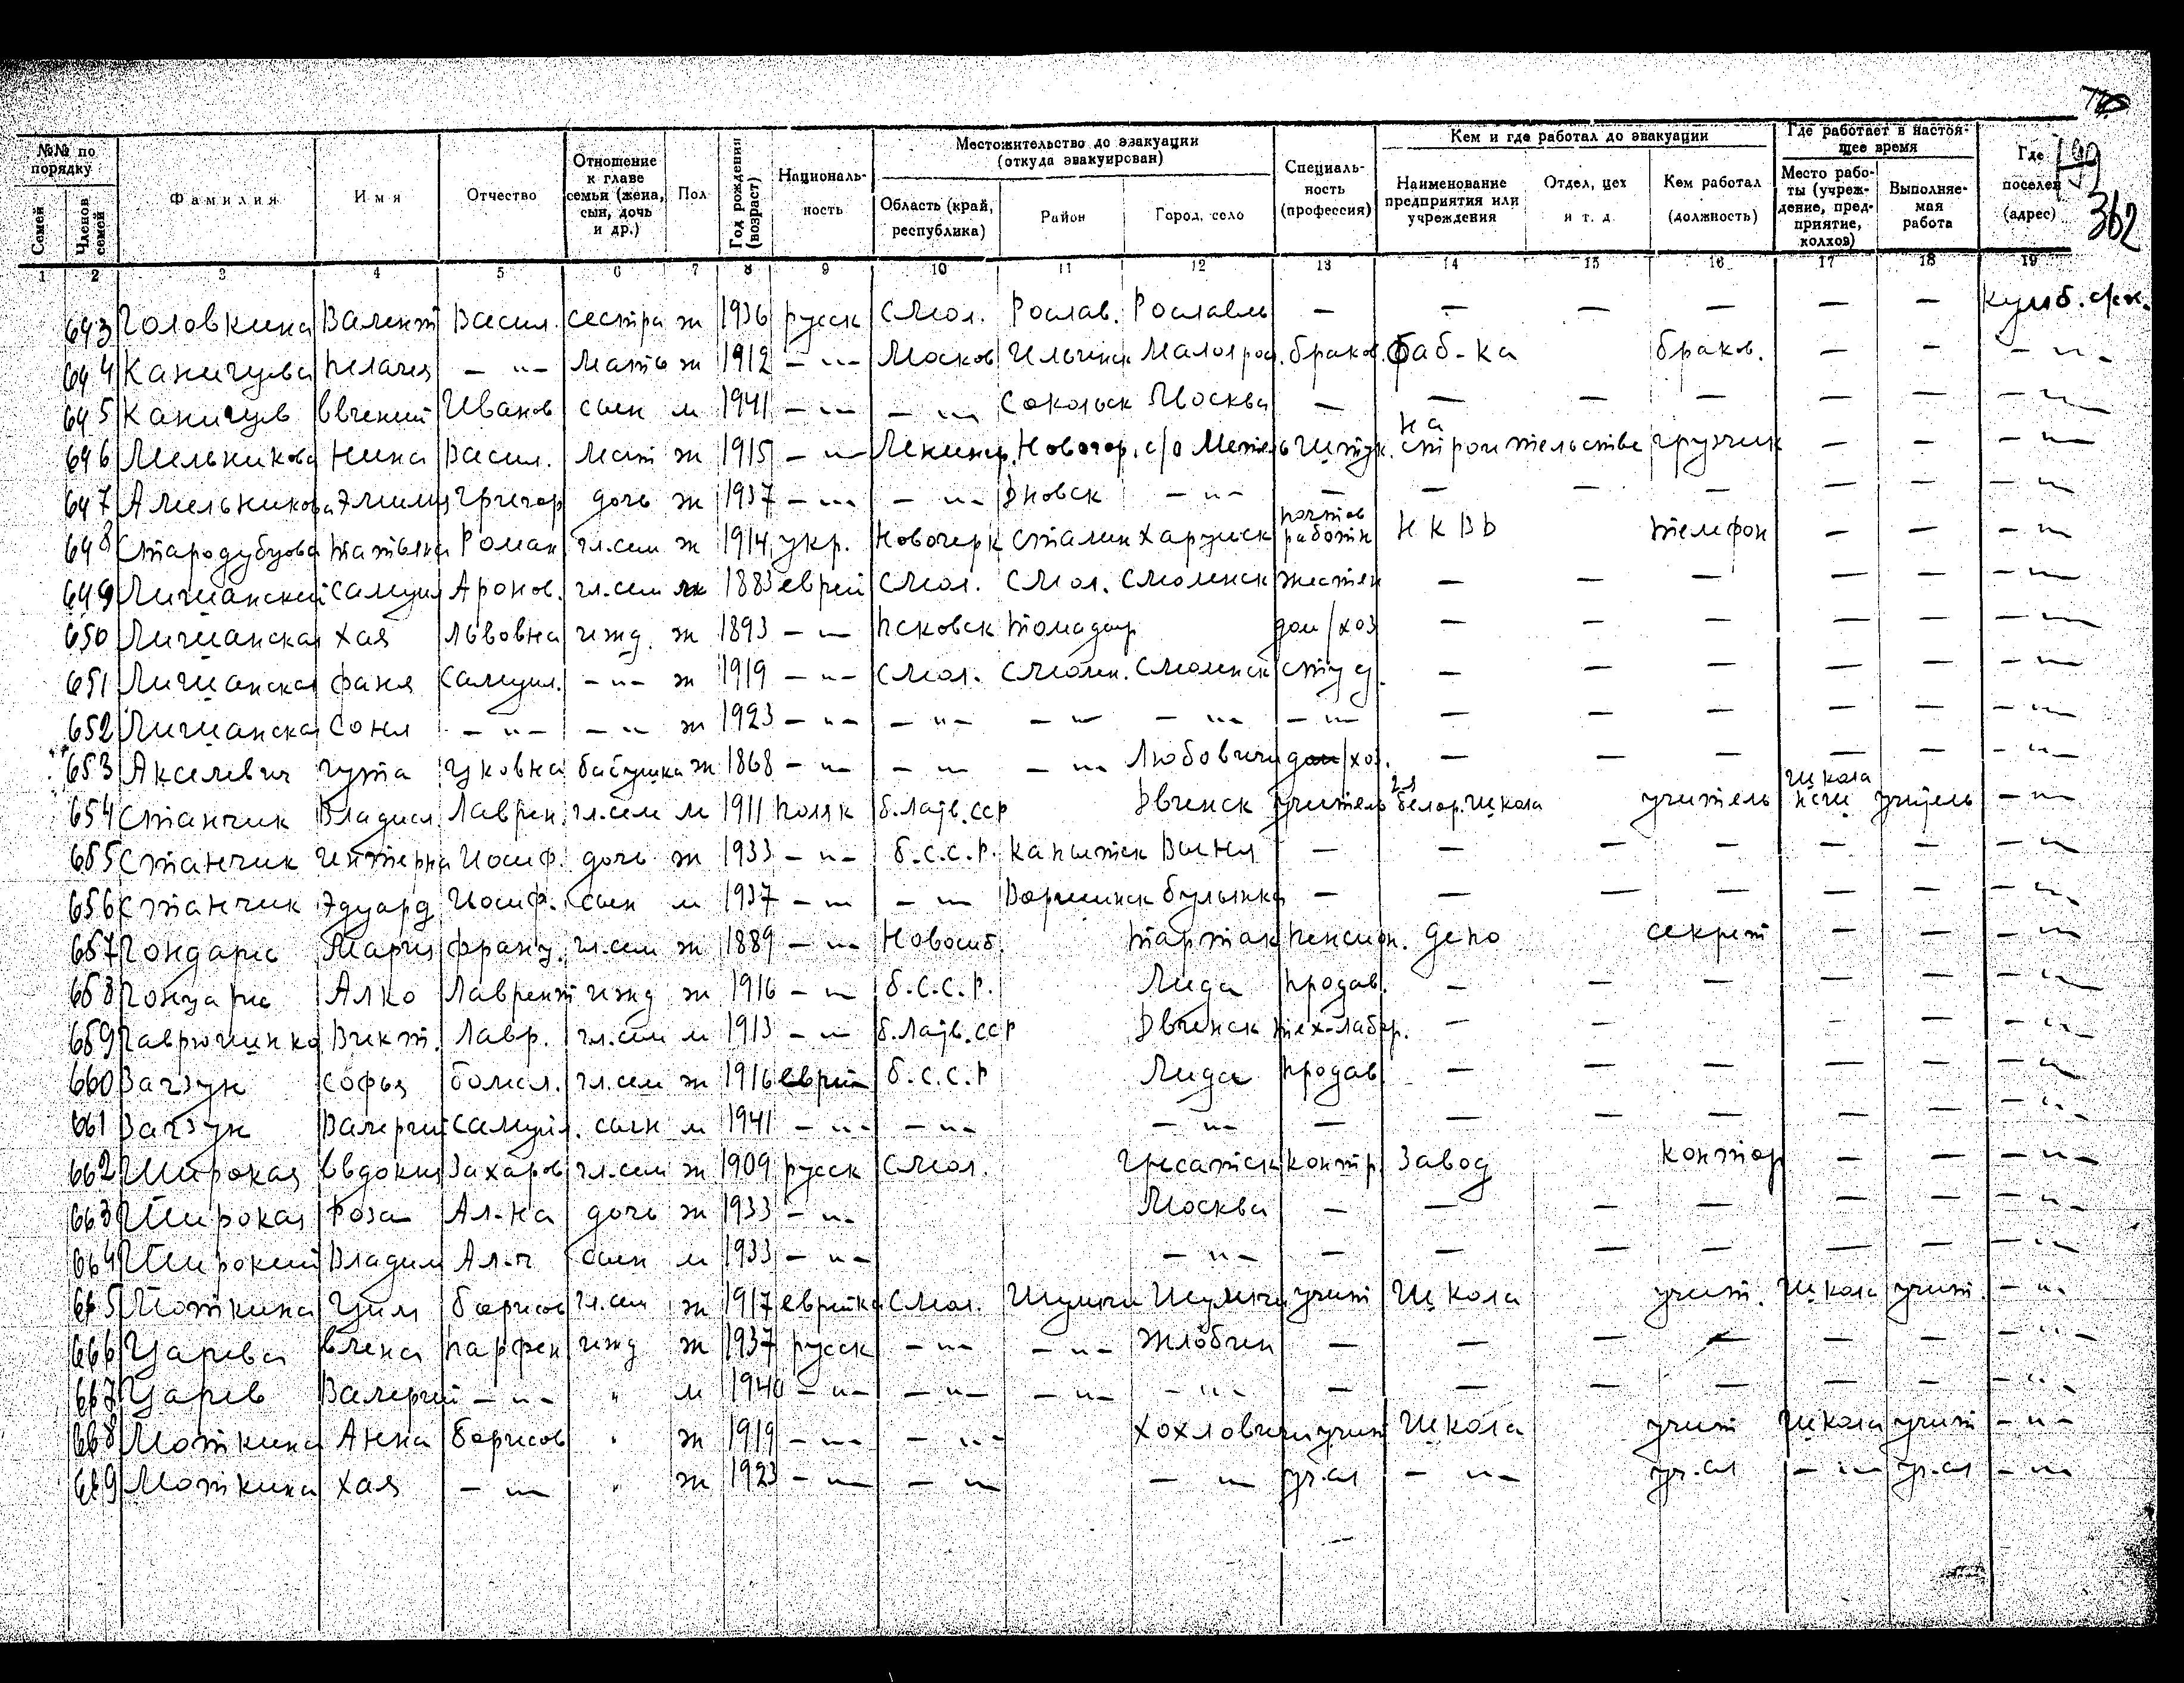 362
№№ по порядку | Фамилия | Имя | Отчество | Отношение к главе семьи (жена, сын, дочь и др.) | Пол | Год рождения (возраст) | Националь-ность | Местожительство до эвакуации (откуда эвакуирован) | Специаль-ность (профессия) | Кем и где работал до эвакуации | Где работает в настоя-щее время | Где поселен (адрес)
Семей | Членов семей | Область (край, республика) | Район | Город, село | Наименование предприятия или учреждения | Отдел, цех и т. д. | Кем работал (должность) | Место рабо-ты (учреж-дение, пред-приятие, колхоз) | Выполняе-мая работа
1 2 3 4 5 6 7 8 9 10 11 12 13 14 15 16 17 18 19
643 Головкина Валент Васил. сестра ж 1936 русск Смол. Рослав. Рославль — — — — — — Куйб.
644 Каничева Пелагея — " — мать ж 1912 — " — Москов Ильинск Малояр. браков. фаб-ка браков. — — — " —
645 Каничев Евгений Иванов сын м 1941 — " — — " — Сокольск Москва — — — — — — — " —
646 Мельникова Нина Васил. мат ж 1915 — " — Ленингр. Новогор. с/о на строительстве грузчик — — — " —
647 Амельникова Эмилия Григор дочь ж 1937 — " — — " — — " — — — — — — — — " —
648 Стародубцова Татьяна Роман гл.сем ж 1914 укр. Новочерк Сталин Харцизск почтов работн НКВД телефон — — — " —
649 Личианский Самуил Аронов. гл.сем м 1883 еврей Смол. Смол. Смоленск жестян — — — — — — " —
650 Личианская Хая Львовна ижд. ж 1893 — " — Псковск дом/хоз — — — — — — " —
651 Личианская Фаня Самуил. — " — ж 1919 — " — Смол. Смолен. Смоленск студ. — — — — — — " —
652 Личианская Соня — " — — " — ж 1923 — " — — " — — " — — " — — " — — — — — — — " —
653 Акселевич Гута Цковна бабушка ж 1868 — " — — " — — " — Любовичи дом/хоз. — — — — — — " —
654 Станчик Владисл. Лаврен. гл.сем м 1911 поляк б.Латв.ССР Двинск учитель белор. школа учитель школа НСШ учитель — " —
655 Станчик Интерна Иосиф. дочь ж 1933 — " — Б.С.С.Р. — — — — — — — " —
656 Станчик Эдуард Иосиф. сын м 1937 — " — — " — — — — — — — — " —
657 Гондарис Мария Франц. гл.сем ж 1889 — " — Новосиб. Тартак пенсион. депо секрет — — — " —
658 Алко Лаврент ижд ж 1916 — " — Б.С.С.Р. Лида продав. — — — — — — " —
659 Викт. Лавр. гл.сем м 1913 — " — б.Латв.ССР Двинск тех-лабор. — — — — — — " —
660 Загзук Софья гл.сем ж 1916 еврей Б.С.С.Р Лида продав — — — — — — " —
661 Загзук Валерий Самуил. сын м 1941 — " — — " — — " — — — — — — — — " —
662 Широкая Евдокия Захаров гл.сем ж 1909 русск Смол. контр. Завод контор — — — " —
663 Широкая Роза Ал-на дочь ж 1933 — " — Москва — — — — — — — " —
664 Широкий Владим Ал-ч сын м 1933 — " — — " — — — — — — — — " —
665 Моткина Циля Борисов гл.сем ж 1917 еврейка Смол. Шумячи Шумячи учит Школа учит. Школа учит. — " —
666 Царева Елена Парфен ижд ж 1937 русск — " — — " — Жлобин — — — — — — — " —
667 Царев Валерий — " — " м 1940 — " — — " — — " — — " — — — — — — — — " —
668 Моткина Анна Борисов " ж 1919 — " — — " — Хохловичи учит Школа учит Школа учит — " —
669 Моткина Хая — " — " ж 1923 — " — — " — — " — уч.ся — " — уч.ся — " — уч.ся — " —